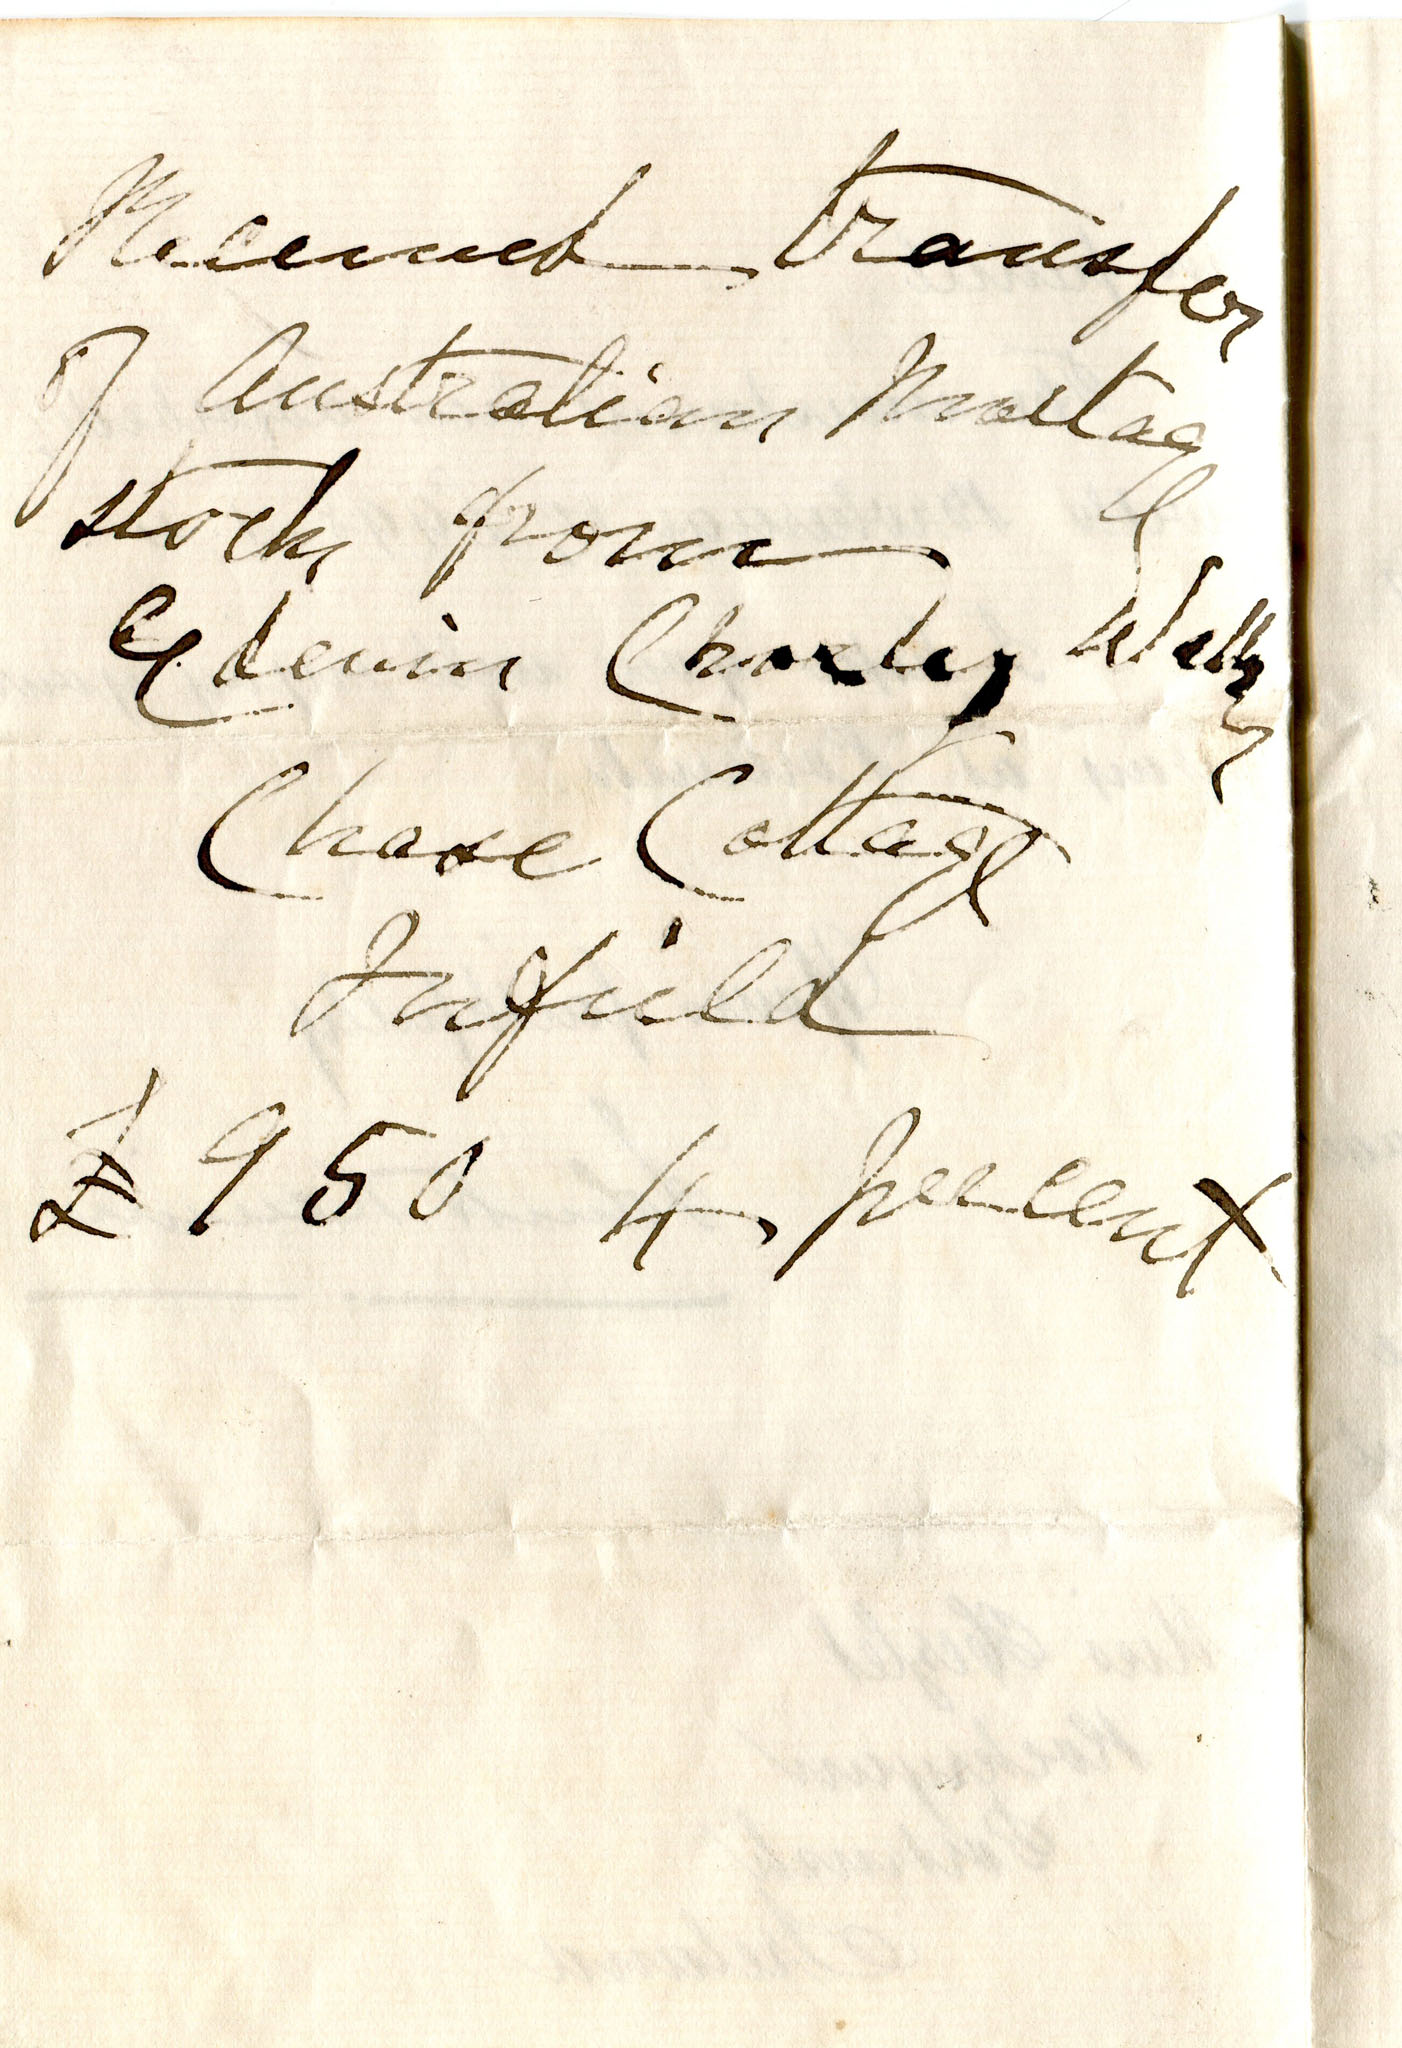 Received transfer
of Australian Mortage
stock from
Edwin Charles Wells
Chase Cottage
Infield
£950 4 percent